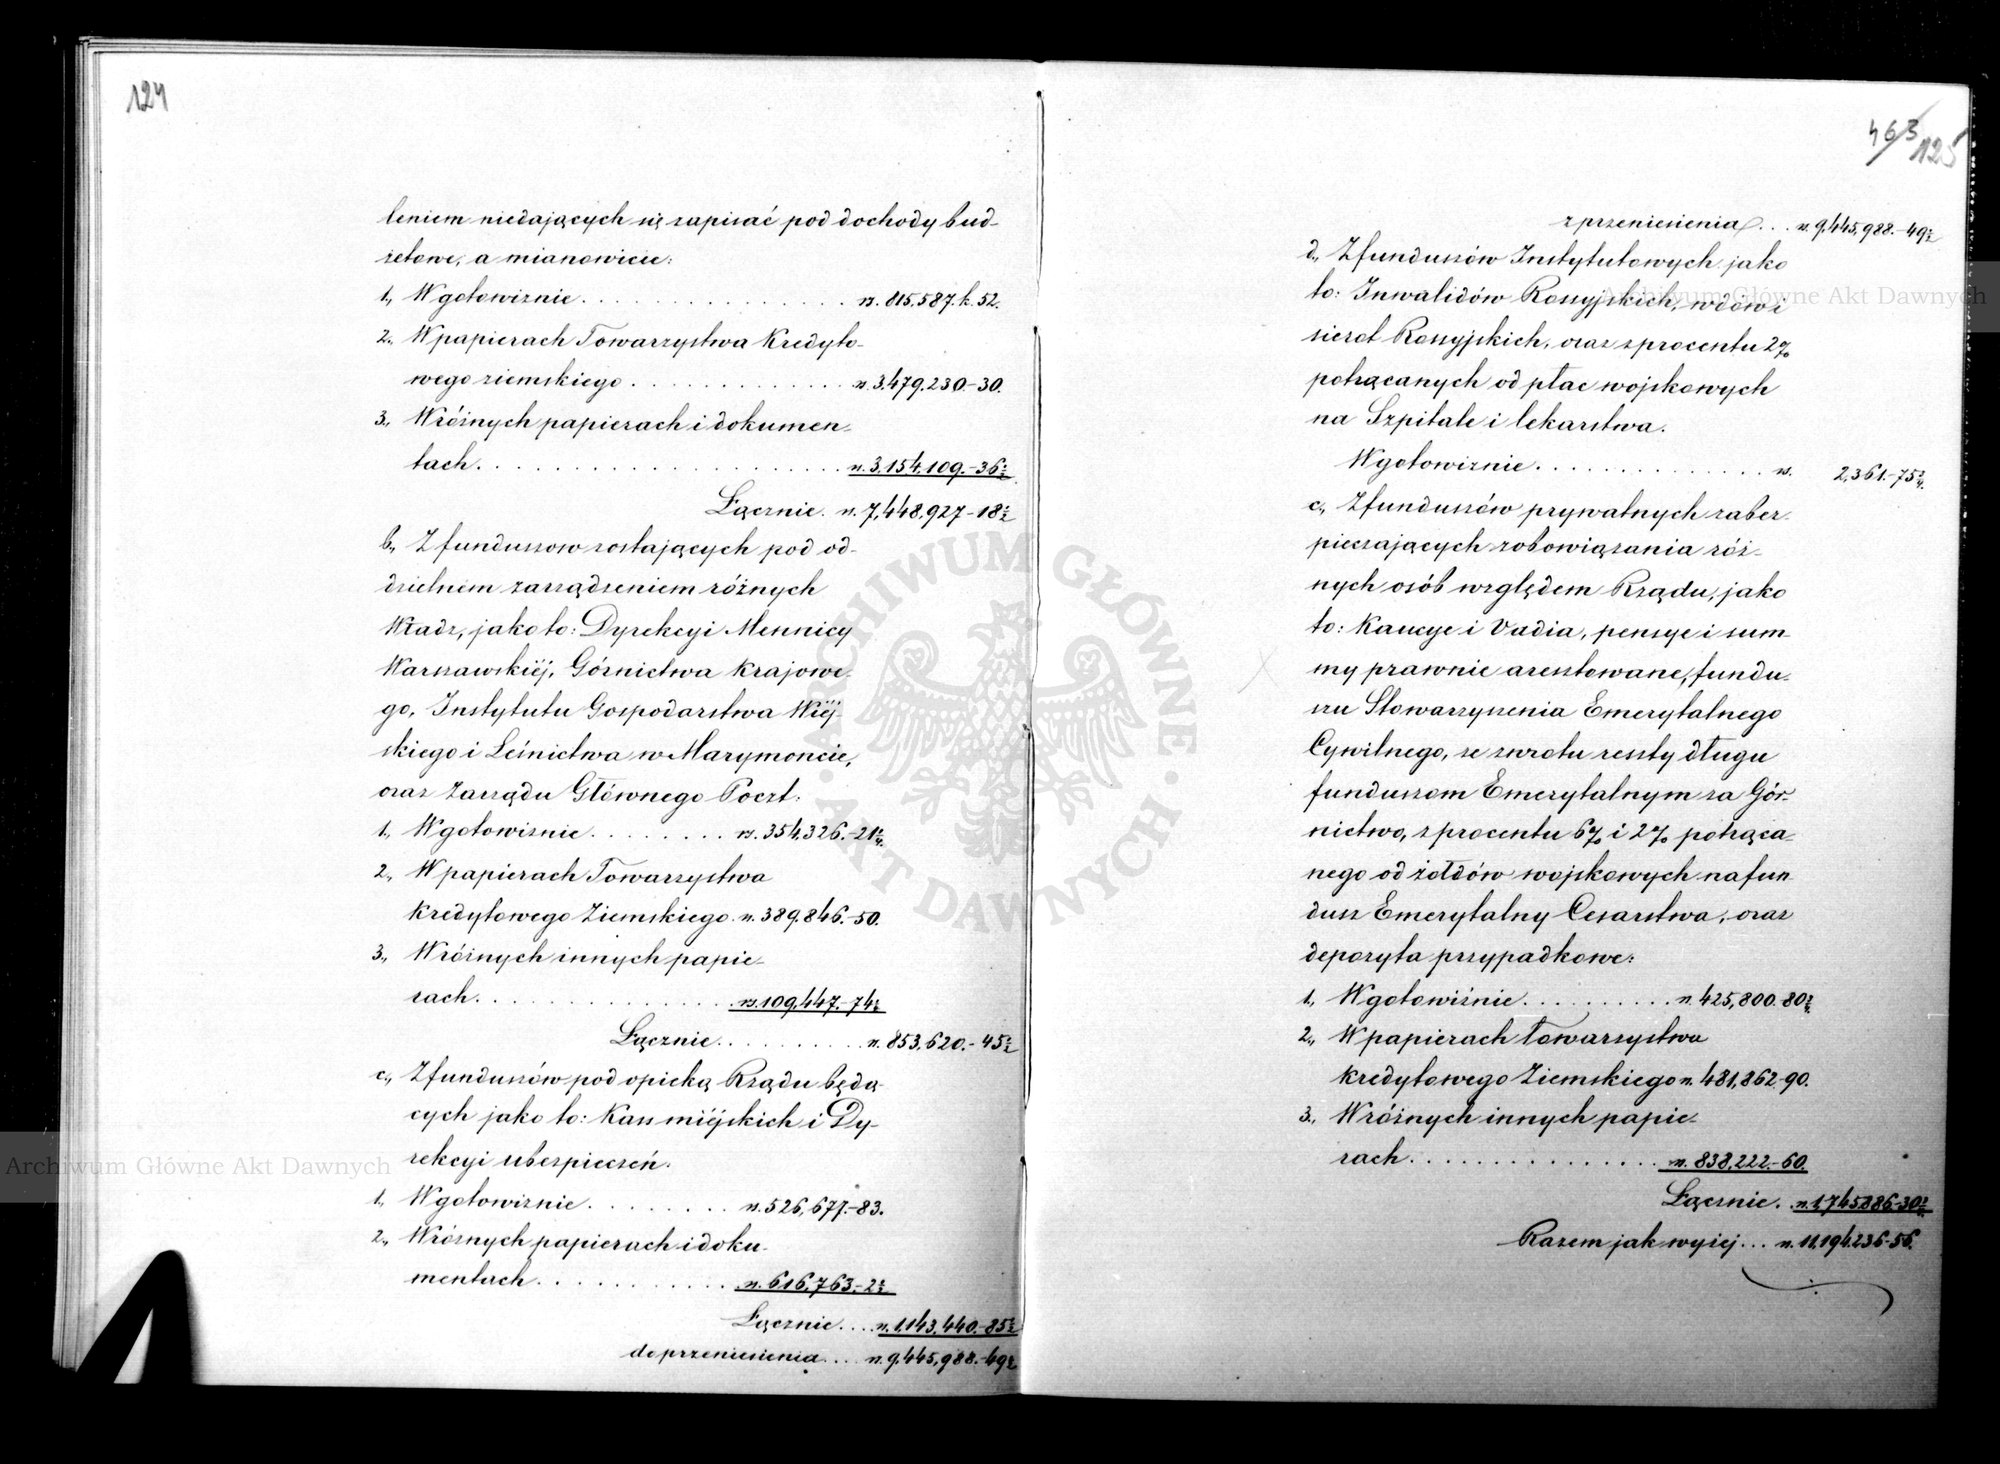 124
leniem niedających się zapisać pod dochody bud-
żetowe, a mianowicie:
1., W gotowiznie . . . . . . . . . . . . . . . rs. 815,587. k. 52.
2., W papierach Towarzystwa Kredyto-
wego ziemskiego . . . . . . . . . . . . . rs. 3,479,230-30.
3., W różnych papierach i dokumen-
tach . . . . . . . . . . . . . . . . . . . . . rs. 3,154,109.-36½
Łącznie. rs. 7,448,927-18½
b., Z funduszow zostających pod od-
dzielnem zarządzeniem różnych
Władz, jako to: Dyrekcyi Mennicy
Warszawskiéj, Górnictwa krajowe-
go, Instytutu Gospodarstwa Wiéj-
skiego i Leśnictwa w Marymoncie,
oraz Zarządu Głównego Poczt.
1., W gotowiznie . . . . . . . . rs. 354,326.-21¼
2., W papierach Towarzystwa
Kredytowego Ziemskiego. rs. 389,846.-50.
3., W różnych innych papie-
rach . . . . . . . . . . . . . . . rs. 109,447.-74½
Łącznie . . . . . . . . . . rs. 853,620.-45½
c., Z funduszów pod opieką Rządu będą-
cych jako to: Kass miéjskich i Dy-
rekcyi ubezpieczeń.
1., W gotowiznie . . . . . . . . rs. 526,677.-83.
2., W różnych papierach i doku-
mentach . . . . . . . . . . . . rs. 616,763.-2½
Łącznie . . . . rs. 1,143,440.-85½
do przeniesienia . . . . rs. 9,445,988.-49½
463
125
z przeniesienia . . . rs. 9,445,988.-49½
d., Z funduszów Instytutowych jako
to: Inwalidów Rossyjskich, wdów i
sierot Rossyjskich, oraz z procentu 2%
potrącanych od płac wojskowych
na Szpitale i lekarstwa.
W gotowiznie . . . . . . . . . . . . . . rs. 2,361.-75¾
e., Z funduszów prywatnych zabez-
pieczających zobowiązania róż-
nych osób względem Rządu, jako
to: Kaucye i Vadia, pensye i sum-
my prawnie aresztowane, fundu-
szu Stowarzyszenia Emerytalnego
Cywilnego, ze zwrotu reszty długu
funduszom Emerytalnym za Gór-
nictwo, z procentu 6% i 2% potrąca-
nego od żołdów wojskowych na fun-
dusz Emerytalny Cesarstwa, oraz
depozyta przypadkowe:
1., W gotowiźnie . . . . . . . . . . rs. 425,800.80¾
2., W papierach towarzystwa
Kredytowego Ziemskiego rs. 481,862.90.
3., W różnych innych papie-
rach . . . . . . . . . . . . . . . rs. 838,222.-60.
Łącznie . . rs. 1,745,886-30¾
Razem jak wyżej . . . rs. 11,194,236-56.
Archiwum Główne Akt Dawnych
Archiwum Główne Akt Dawnych
ARCHIWUM GŁÓWNE · AKT DAWNYCH ·